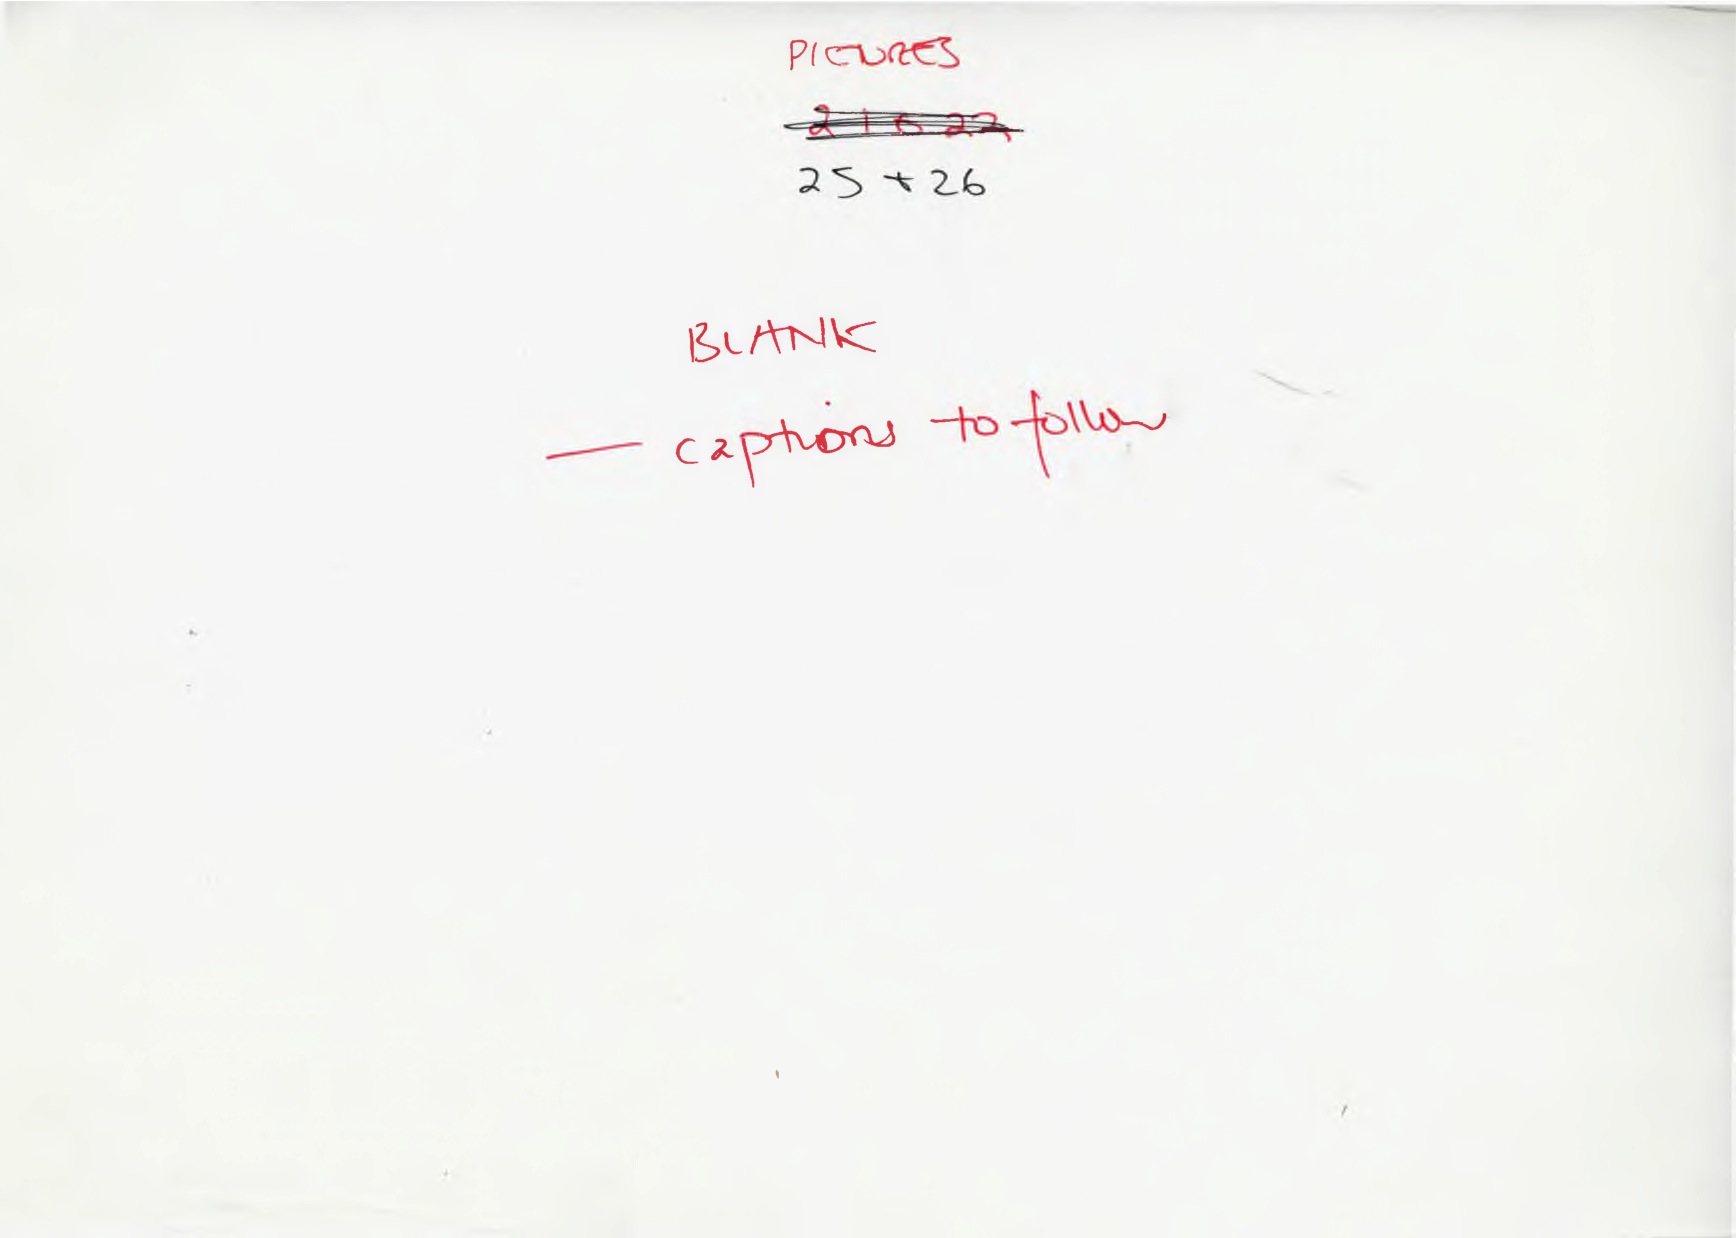 PICTURES
25 + 26
BLANK
— captions to follow